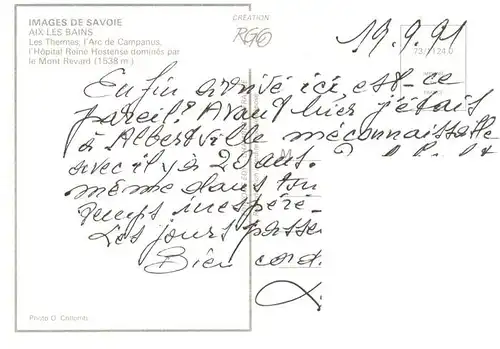 IMAGES DE SAVOIE
AIX LES BAINS
Les Thermes, l'Arc de Campanus,
l'Hôpital Reine Hortense dominés par
le Mont Revard (1538 m.)
CRÉATION
19.9.91
73/ 1124.0
Enfin arrivé ici, est-ce
pareil? Avant hier j'étais
à Albertville méconnaissable
avec il y a 20 ans.
même dans
temps inespéré -
Les jours passe
Bien cord
Photo O. Collomb